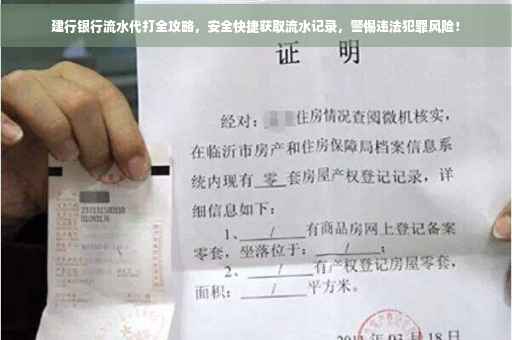 建行银行流水代打全攻略，安全快捷获取流水记录，警惕违法犯罪风险！
证 明
经对：住房情况查阅微机核实，
在临沂市房产和住房保障局档案信息系
统内现有 零 套房屋产权登记记录，详
细信息如下：
1、 / 有商品房网上登记备案
零套，坐落位于： / ；
2、 / 有产权登记房屋零套，
面积： / 平方米。
月 18 日